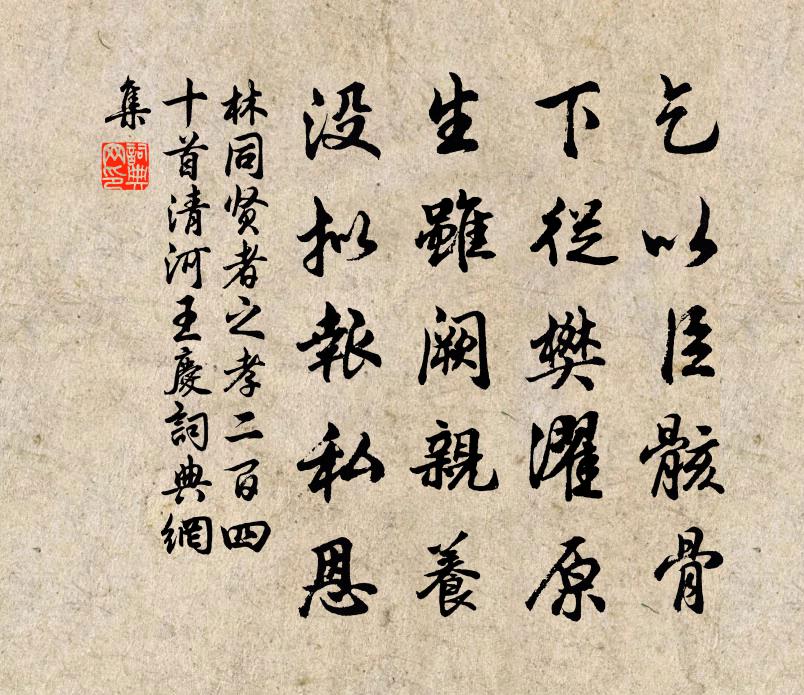 乞以臣骸骨
下從樊濯原
生雖闕親養
没拟報私恩
林同贤者之孝二百四
十首清河王慶詞典網
集
詞典
网印